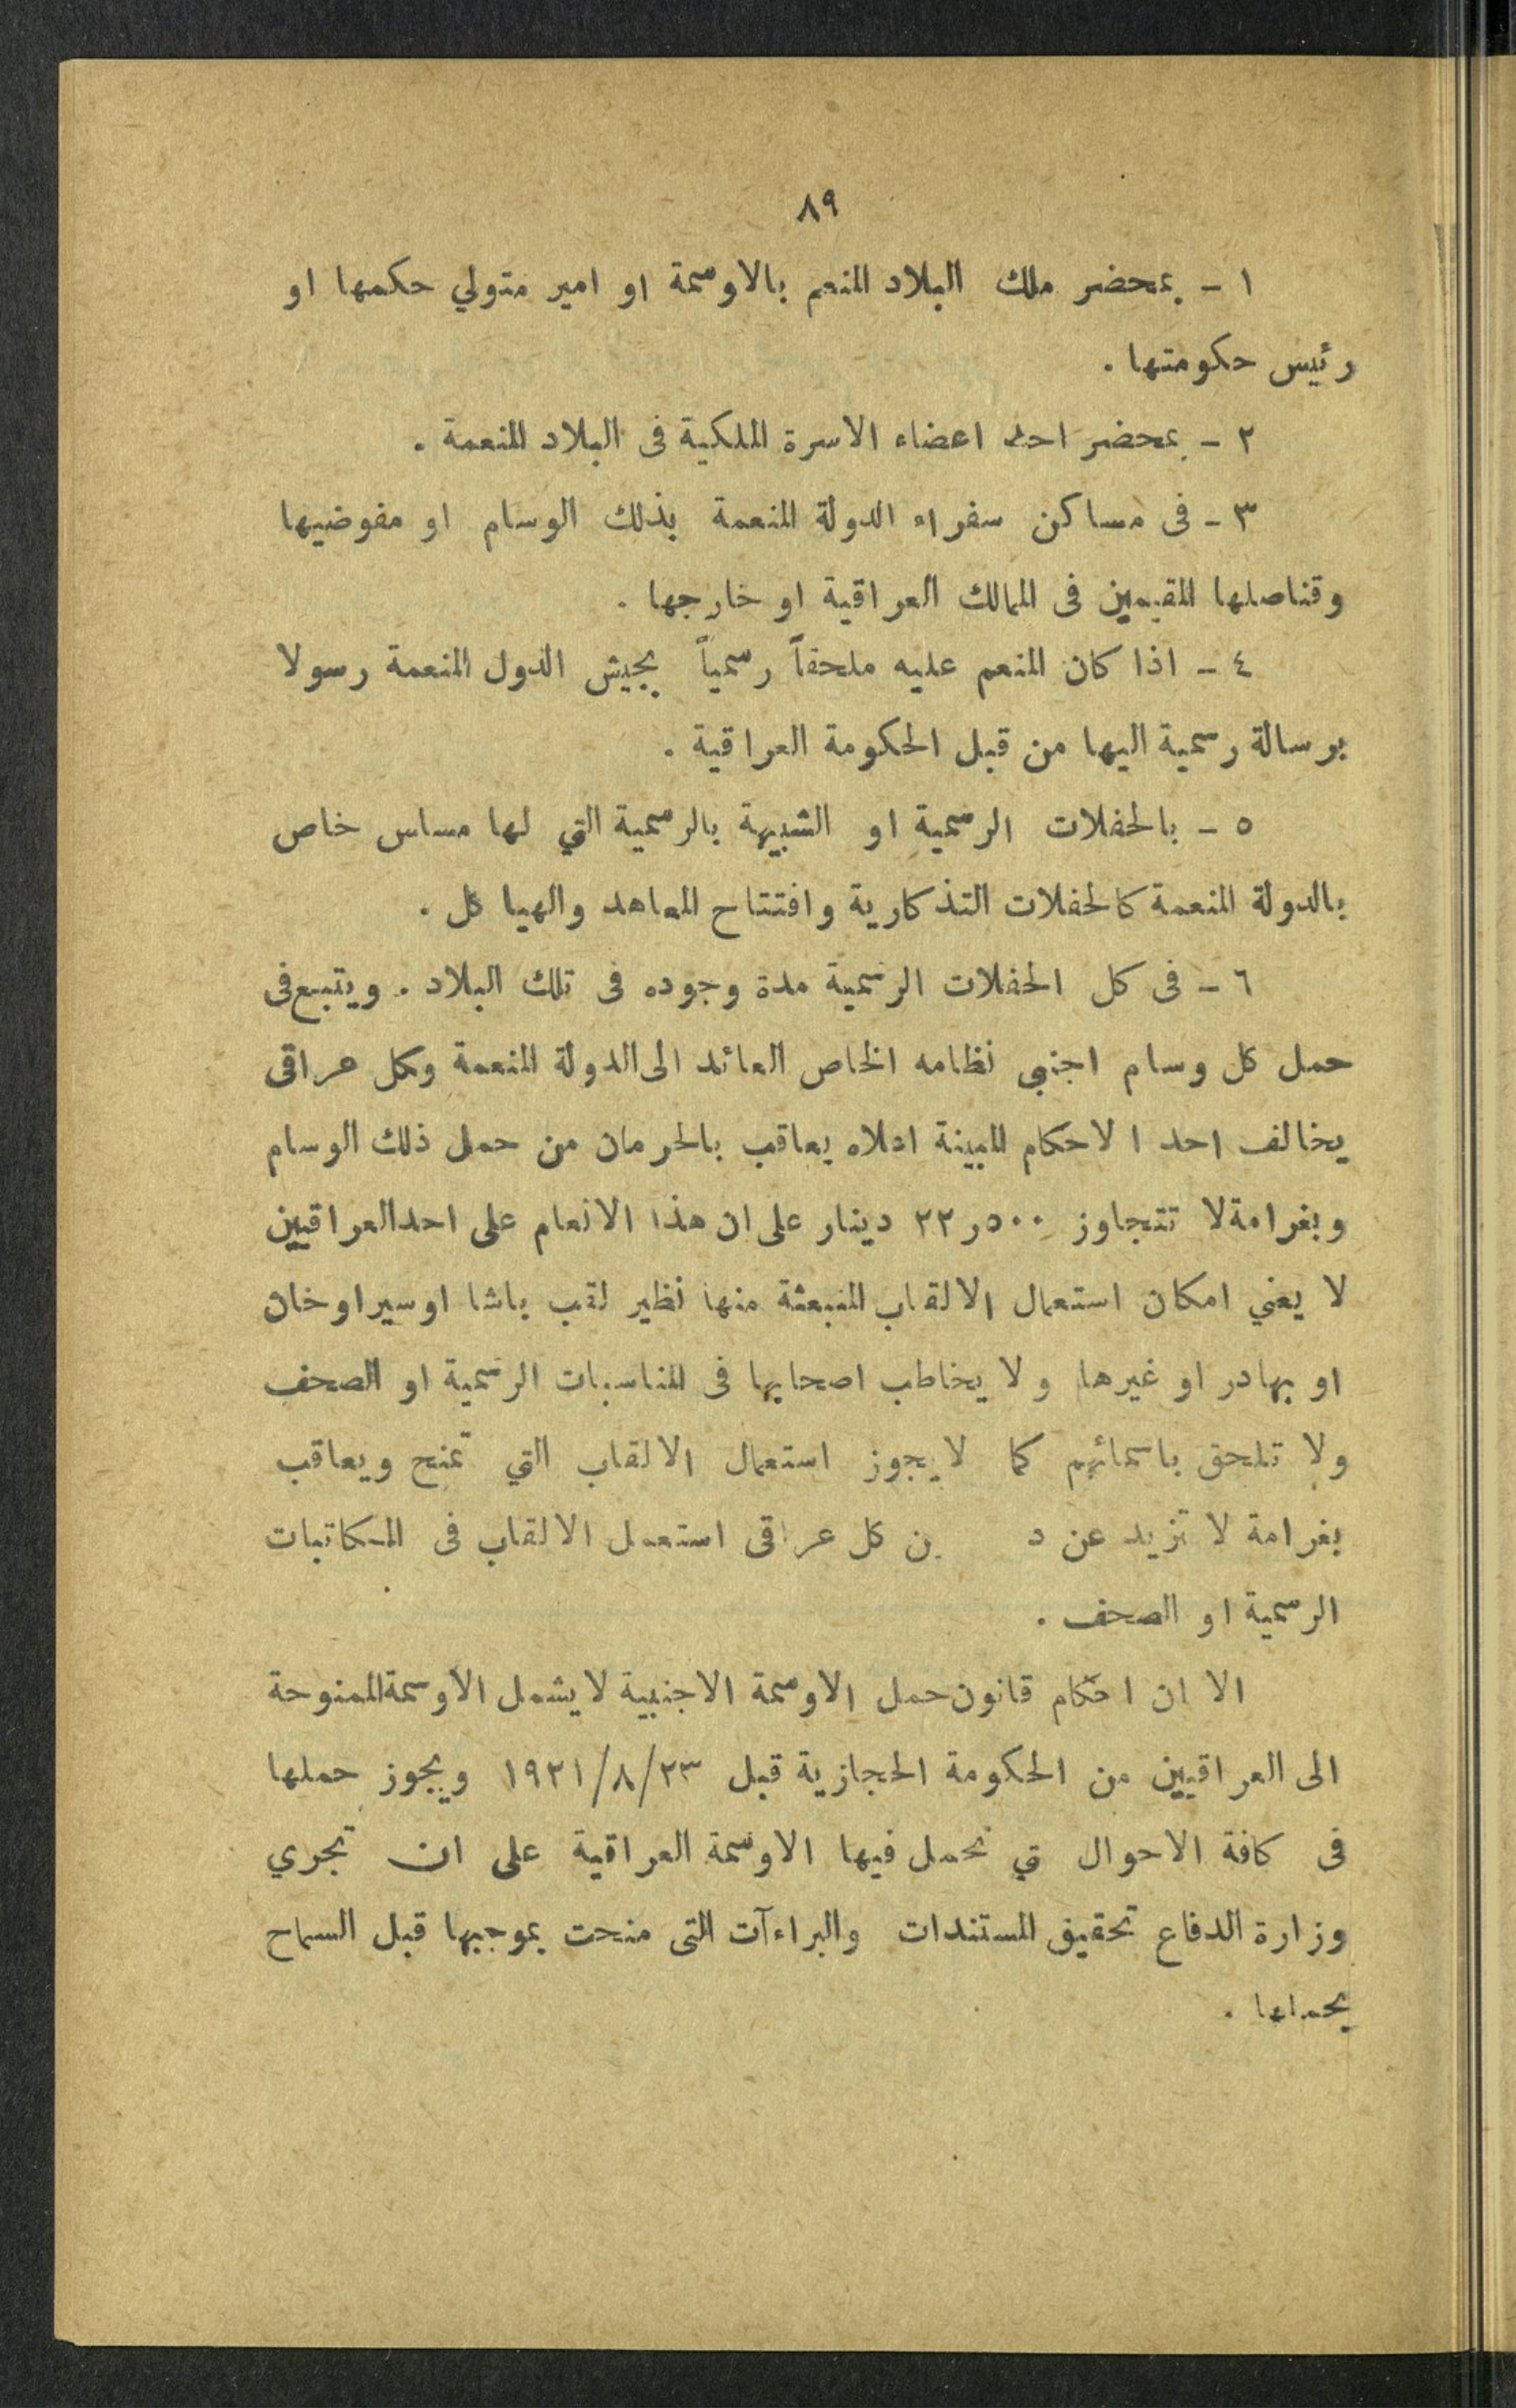 ٨٩
١ - بمحضر ملك البلاد المنعم بالاوسمة او امير متولي حكمها او
رئيس حكومتها .
٢ - بمحضر احد اعضاء الاسرة الملكية فى البلاد المنعمة .
٣ - فى مساكن سفراء الدولة المنعمة بذلك الوسام او مفوضيها
وقناصلها المقيمين فى الممالك العراقية او خارجها .
٤ - اذا كان المنعم عليه ملحقاً رسمياً بجيش الدول المنعمة رسولا
برسالة رسمية اليها من قبل الحكومة العراقية .
٥ - بالحفلات الرسمية او الشبيهة بالرسمية التي لها مساس خاص
بالدولة المنعمة كالحفلات التذكارية وافتتاح المعاهد والهياكل .
٦ - فى كل الحفلات الرسمية مدة وجوده فى تلك البلاد . ويتبع فى
حمل كل وسام اجنبي نظامه الخاص العائد الى الدولة المنعمة وكل عراقى
يخالف احد الاحكام المبينة اعلاه يعاقب بالحرمان من حمل ذلك الوسام
وبغرامة لا تتجاوز ٥٠٠ر٢٢ دينار على ان هذا الانعام على احد العراقيين
لا يعني امكان استعمال الالقاب المنبعثة منها نظير لقب باشا او سير او خان
او بهادر او غيرها ولا يخاطب اصحابها فى المناسبات الرسمية او الصحف
ولا تلحق باسمائهم كما لا يجوز استعمال الالقاب التي تمنح ويعاقب
بغرامة لا تزيد عن د ن كل عراقى استعمل الالقاب فى المكاتبات
الرسمية او الصحف .
الا ان احكام قانون حمل الاوسمة الاجنبية لا يشمل الاوسمة الممنوحة
الى العراقيين من الحكومة الحجازية قبل ١٩٢١/٨/٢٣ ويجوز حملها
فى كافة الاحوال تي تحمل فيها الاوسمة العراقية على ان تجري
وزارة الدفاع تحقيق المستندات والبراءآت التى منحت بموجبها قبل السماح
بحملها .